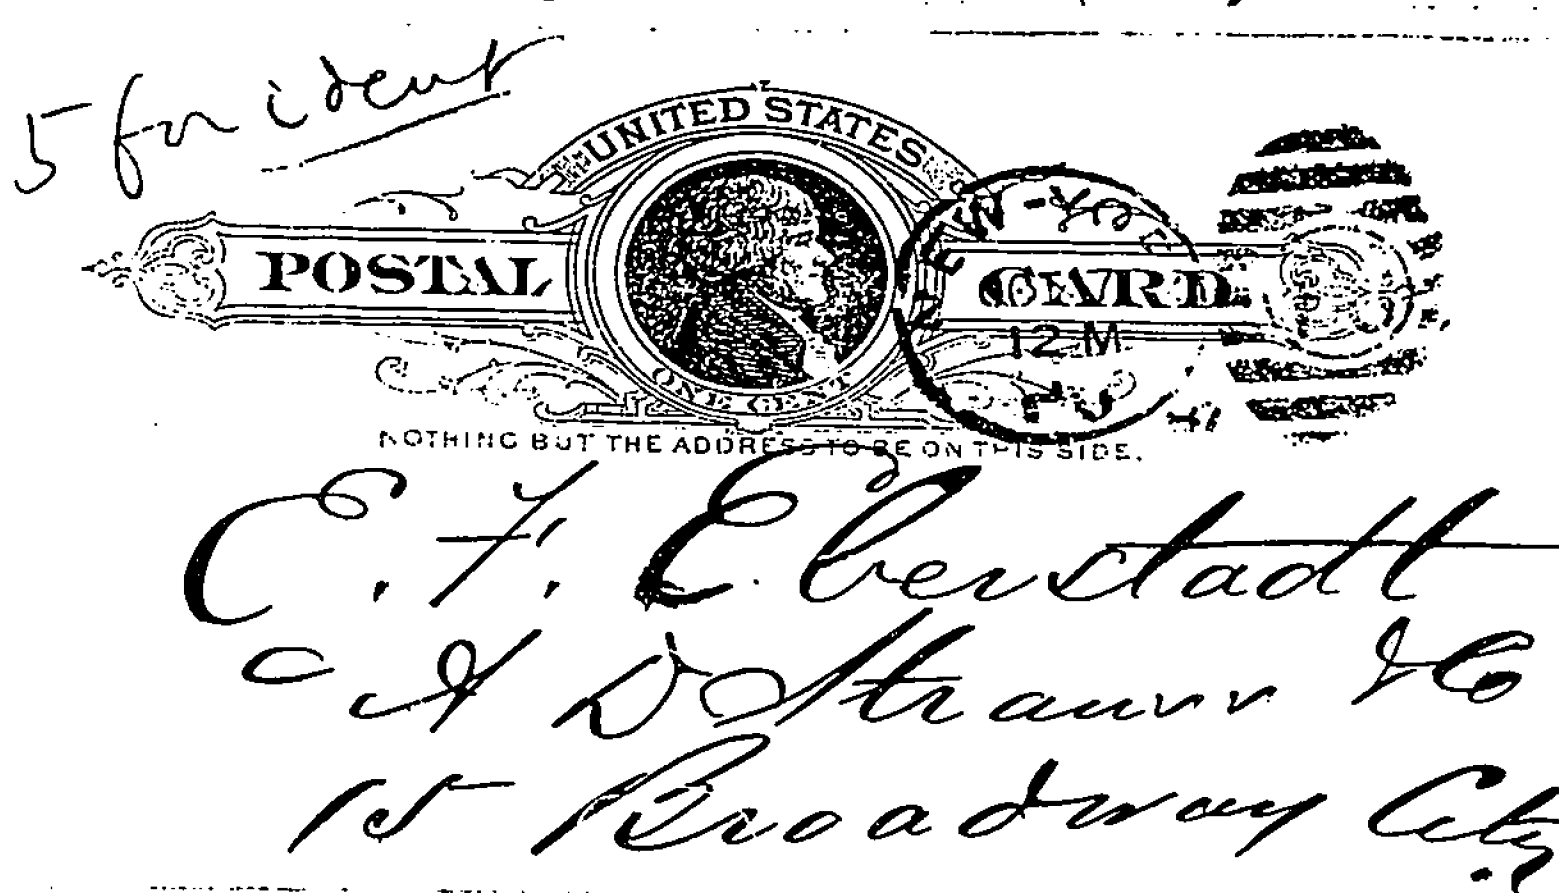 5 for ident
UNITED STATES
POSTAL CARD
ONE CENT
NEW-YORK
12 M
NOTHING BUT THE ADDRESS TO BE ON THIS SIDE.
E. F. Eberstadt
A D Strauss & Co
15 Broadway City